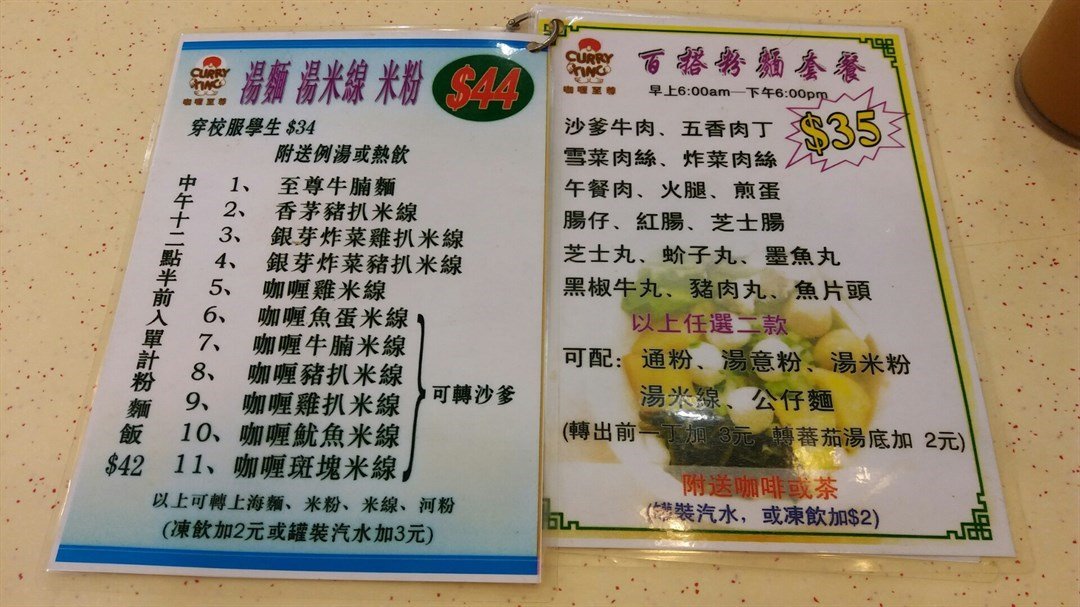 CURRY KING
咖喱至尊
湯麵 湯米線 米粉
$44
穿校服學生 $34
附送例湯或熱飲
中午十二點半前入單計粉麵飯 $42
1、 至尊牛腩麵
2、 香茅豬扒米線
3、 銀芽炸菜雞扒米線
4、 銀芽炸菜豬扒米線
5、 咖喱雞米線
6、 咖喱魚蛋米線
7、 咖喱牛腩米線
8、 咖喱豬扒米線
9、 咖喱雞扒米線
10、咖喱魷魚米線
11、咖喱斑塊米線
可轉沙爹
以上可轉上海麵、米粉、米線、河粉
(凍飲加2元或罐裝汽水加3元)
CURRY KING
咖喱至尊
百搭粉麵套餐
早上6:00am—下午6:00pm
$35
沙爹牛肉、五香肉丁
雪菜肉絲、炸菜肉絲
午餐肉、火腿、煎蛋
腸仔、紅腸、芝士腸
芝士丸、蚧子丸、墨魚丸
黑椒牛丸、豬肉丸、魚片頭
以上任選二款
可配：通粉、湯意粉、湯米粉
湯米線、公仔麵
(轉出前一丁加 3元 轉蕃茄湯底加 2元)
附送咖啡或茶
(罐裝汽水，或凍飲加$2)